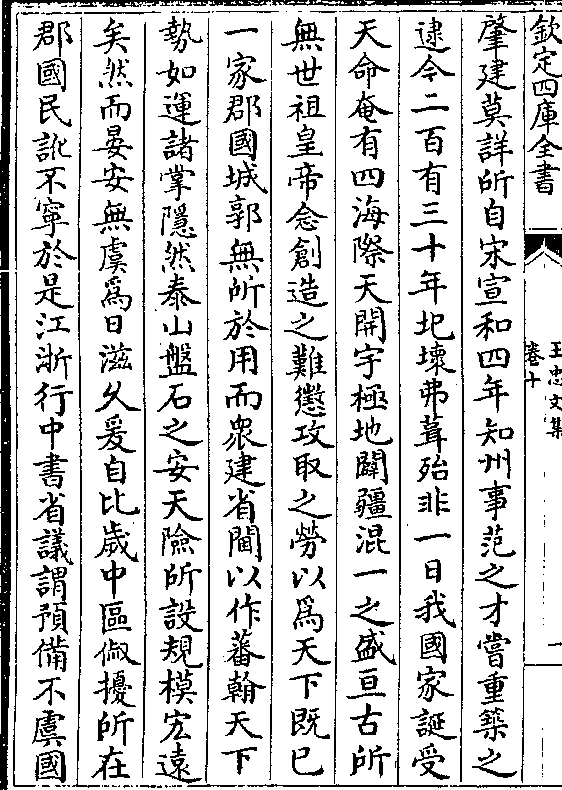 欽定四庫全書
王忠文集
卷十
一
肇建莫詳所自宋宣和四年知州事范之才嘗重築之
逮今二百有三十年圮壞弗葺殆非一日我國家誕受
天命奄有四海際天開宇極地闢疆混一之盛亘古所
無世祖皇帝念創造之難懲攻取之勞以為天下既已
一家郡國城郭無所於用而衆建省閫以作蕃翰天下
勢如運諸掌隱然泰山盤石之安天險所設規模宏遠
矣然而晏安無虞爲日滋久爰自比歲中區俶擾所在
郡國民訛不寧於是江浙行中書省議謂預備不虞國